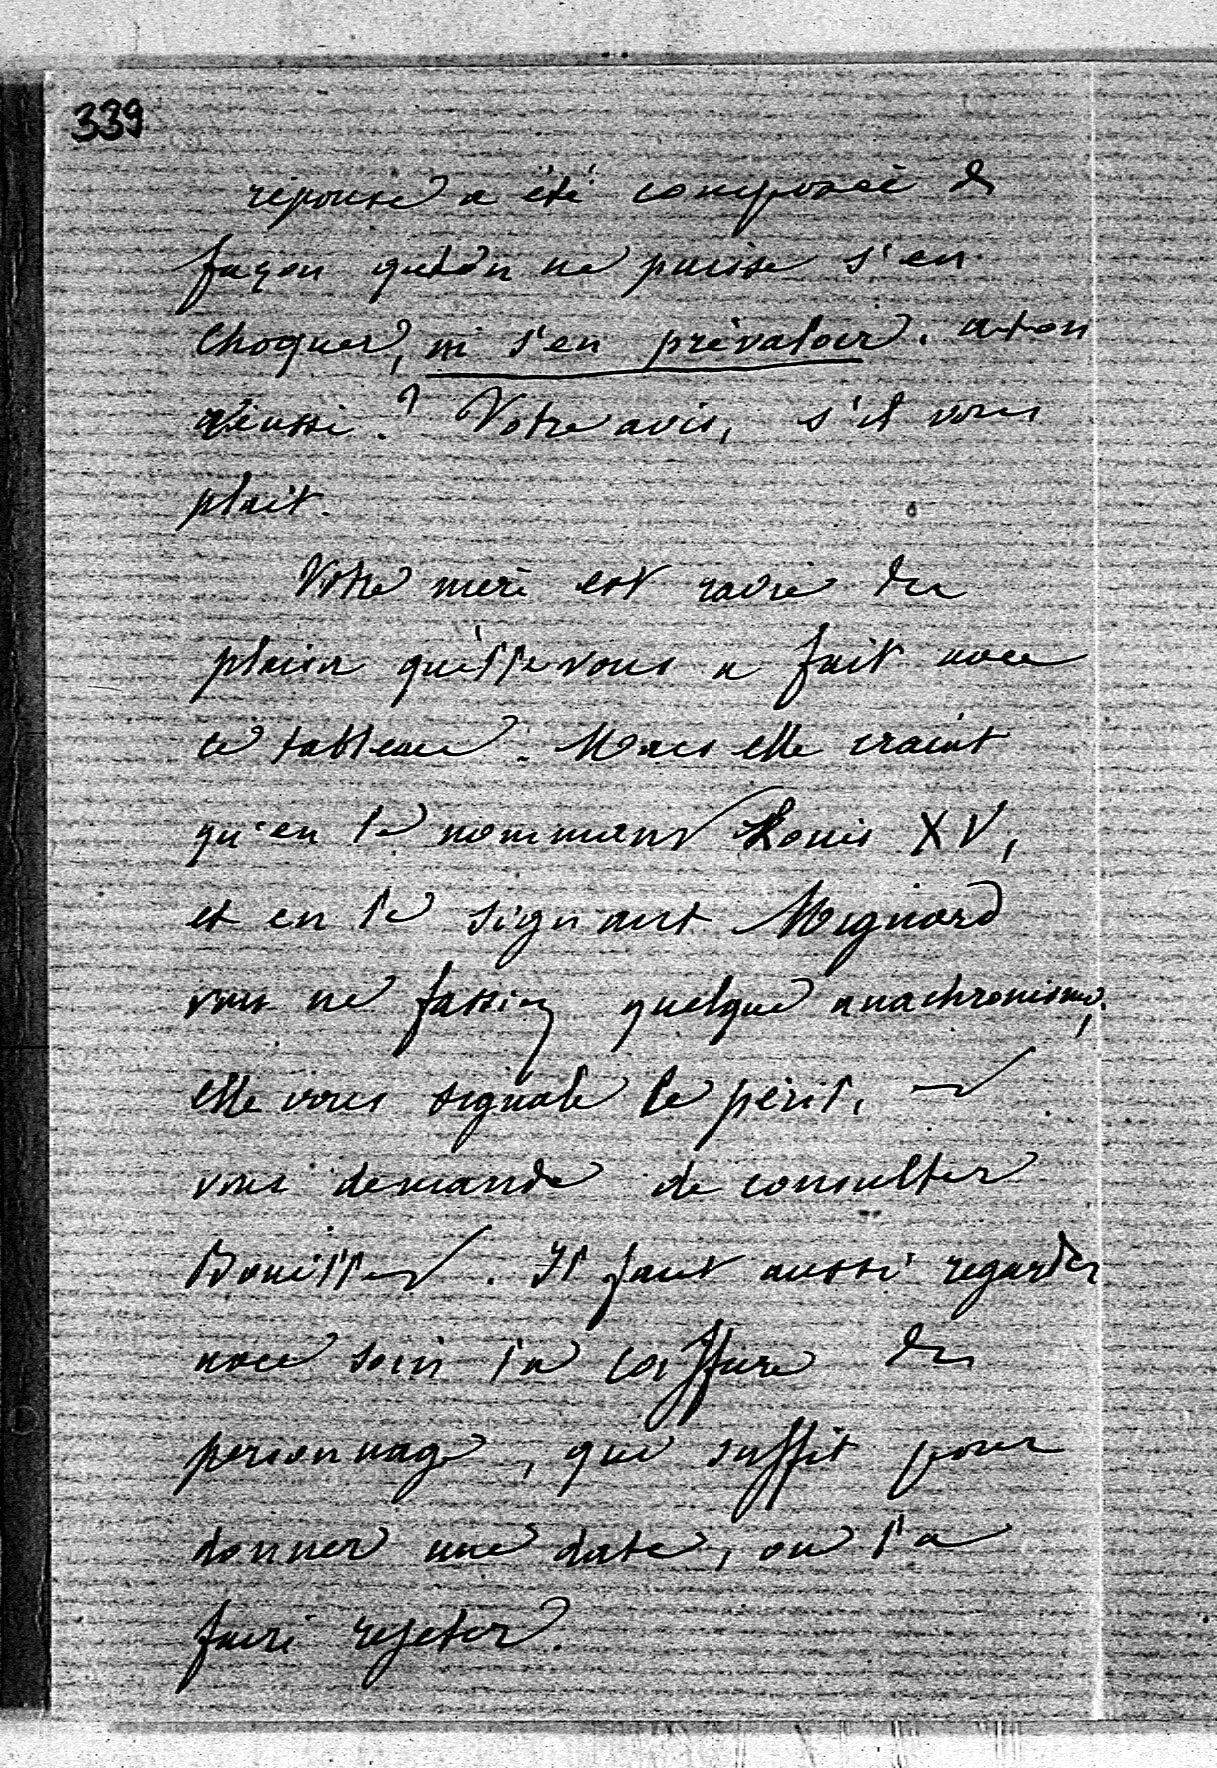 339
réponse a été composée de
façon qu'on ne puisse s'en
choquer, ni s'en prévaloir. a-t-on
réussi ? Votre avis, s'il vous
plait.
Votre mère est ravie du
plaisir qu'elle vous a fait avec
ce tableau. Mais elle craint
qu'en le nommant Louis XV,
et en le signant Mignard
vous ne fassiez quelque anachronisme,
elle vous signale le péril, et
vous demande de consulter
Bouillet. Il faut aussi regarder
avec soin la coiffure du
personnage, qui suffit pour
donner une date, ou la
faire rejeter.